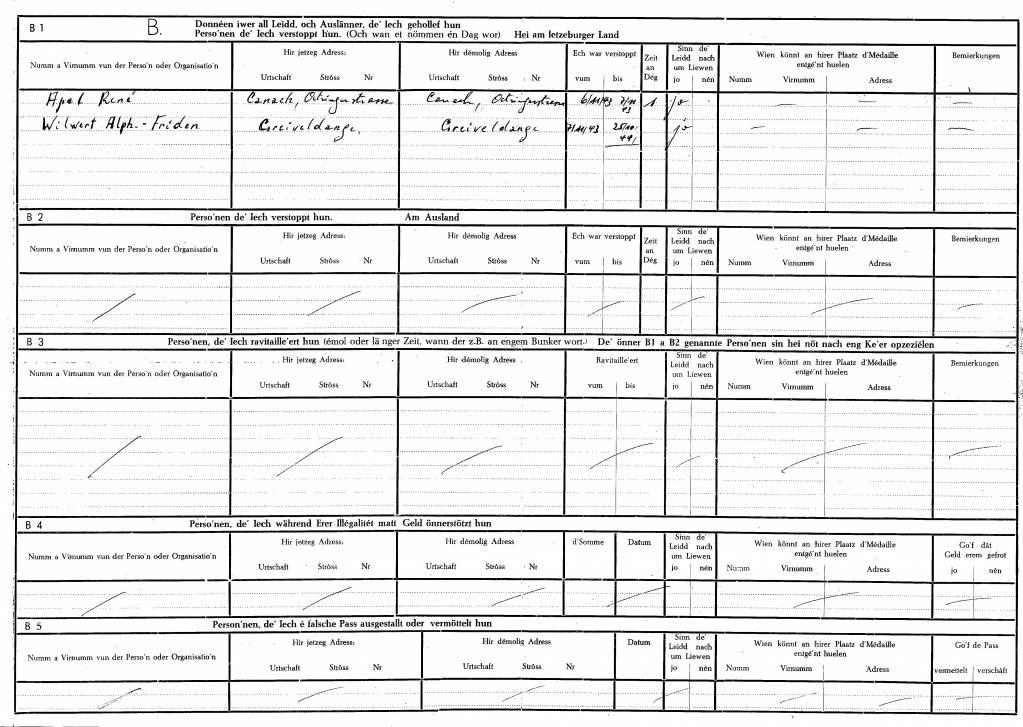 B 1 B. Donnéen iwer all Leidd, och Auslänner, de' Iech gehollef hun
Perso'nen de' Iech verstoppt hun. (Och wan et nömmen én Dag wor) Hei am letzeburger Land
Numm a Virnumm vun der Perso'n oder Organisatio'n Hir jetzeg Adress: Hir démolig Adress Ech war verstoppt Zeit an Dég Sinn de' Leidd nach um Liewen Wien könnt an hirer Plaatz d'Médaille entgé'nt huelen Bemierkungen
Urtschaft Ströss Nr Urtschaft Ströss Nr vum bis jo nén Numm Virnumm Adress
Apel René Canach, Canach, 6/11/43 7/11 43 1 jo — — —
Wilwert Alph.-Friden Greiveldange, Greiveldange 7/11/43 25/10/44 jo — — —
B 2 Perso'nen de' Iech verstoppt hun. Am Ausland
Numm a Virnumm vun der Perso'n oder Organisatio'n Hir jetzeg Adress: Hir démolig Adress Ech war verstoppt Zeit an Dég Sinn de' Leidd nach um Liewen Wien könnt an hirer Plaatz d'Médaille entgé'nt huelen Bemierkungen
Urtschaft Ströss Nr Urtschaft Ströss Nr vum bis jo nén Numm Virnumm Adress
B 3 Perso'nen, de' Iech ravitaille'ert hun (émol oder länger Zeit, wann der z.B. an engem Bunker wort.) De' önner B1 a B2 genannte Perso'nen sin hei nöt nach eng Ke'er opzeziélen
Numm a Virnumm vun der Perso'n oder Organisatio'n Hir jetzeg Adress: Hir démolig Adress Ravitaille'ert Sinn de' Leidd nach um Liewen Wien könnt an hirer Plaatz d'Médaille entgé'nt huelen Bemierkungen
Urtschaft Ströss Nr Urtschaft Ströss Nr vum bis jo nén Numm Virnumm Adress
B 4 Perso'nen, de' Iech während Erer Illégalitét matt Geld önnerstötzt hun
Numm a Virnumm vun der Perso'n oder Organisatio'n Hir jetzeg Adress: Hir démolig Adress d'Somme Datum Sinn de' Leidd nach um Liewen Wien könnt an hirer Plaatz d'Médaille entgé'nt huelen Go'f dât Geld erem gefrot
Urtschaft Ströss Nr Urtschaft Ströss Nr jo nén Numm Virnumm Adress jo nén
B 5 Person'nen, de' Iech é falsche Pass ausgestallt oder vermöttelt hun
Numm a Virnumm vun der Perso'n oder Organisatio'n Hir jetzeg Adress: Hir démolig Adress Datum Sinn de' Leidd nach um Liewen Wien könnt an hirer Plaatz d'Médaille entgé'nt huelen Go'f de Pass
Urtschaft Ströss Nr Urtschaft Ströss Nr jo nén Numm Virnumm Adress vermettelt verschâft